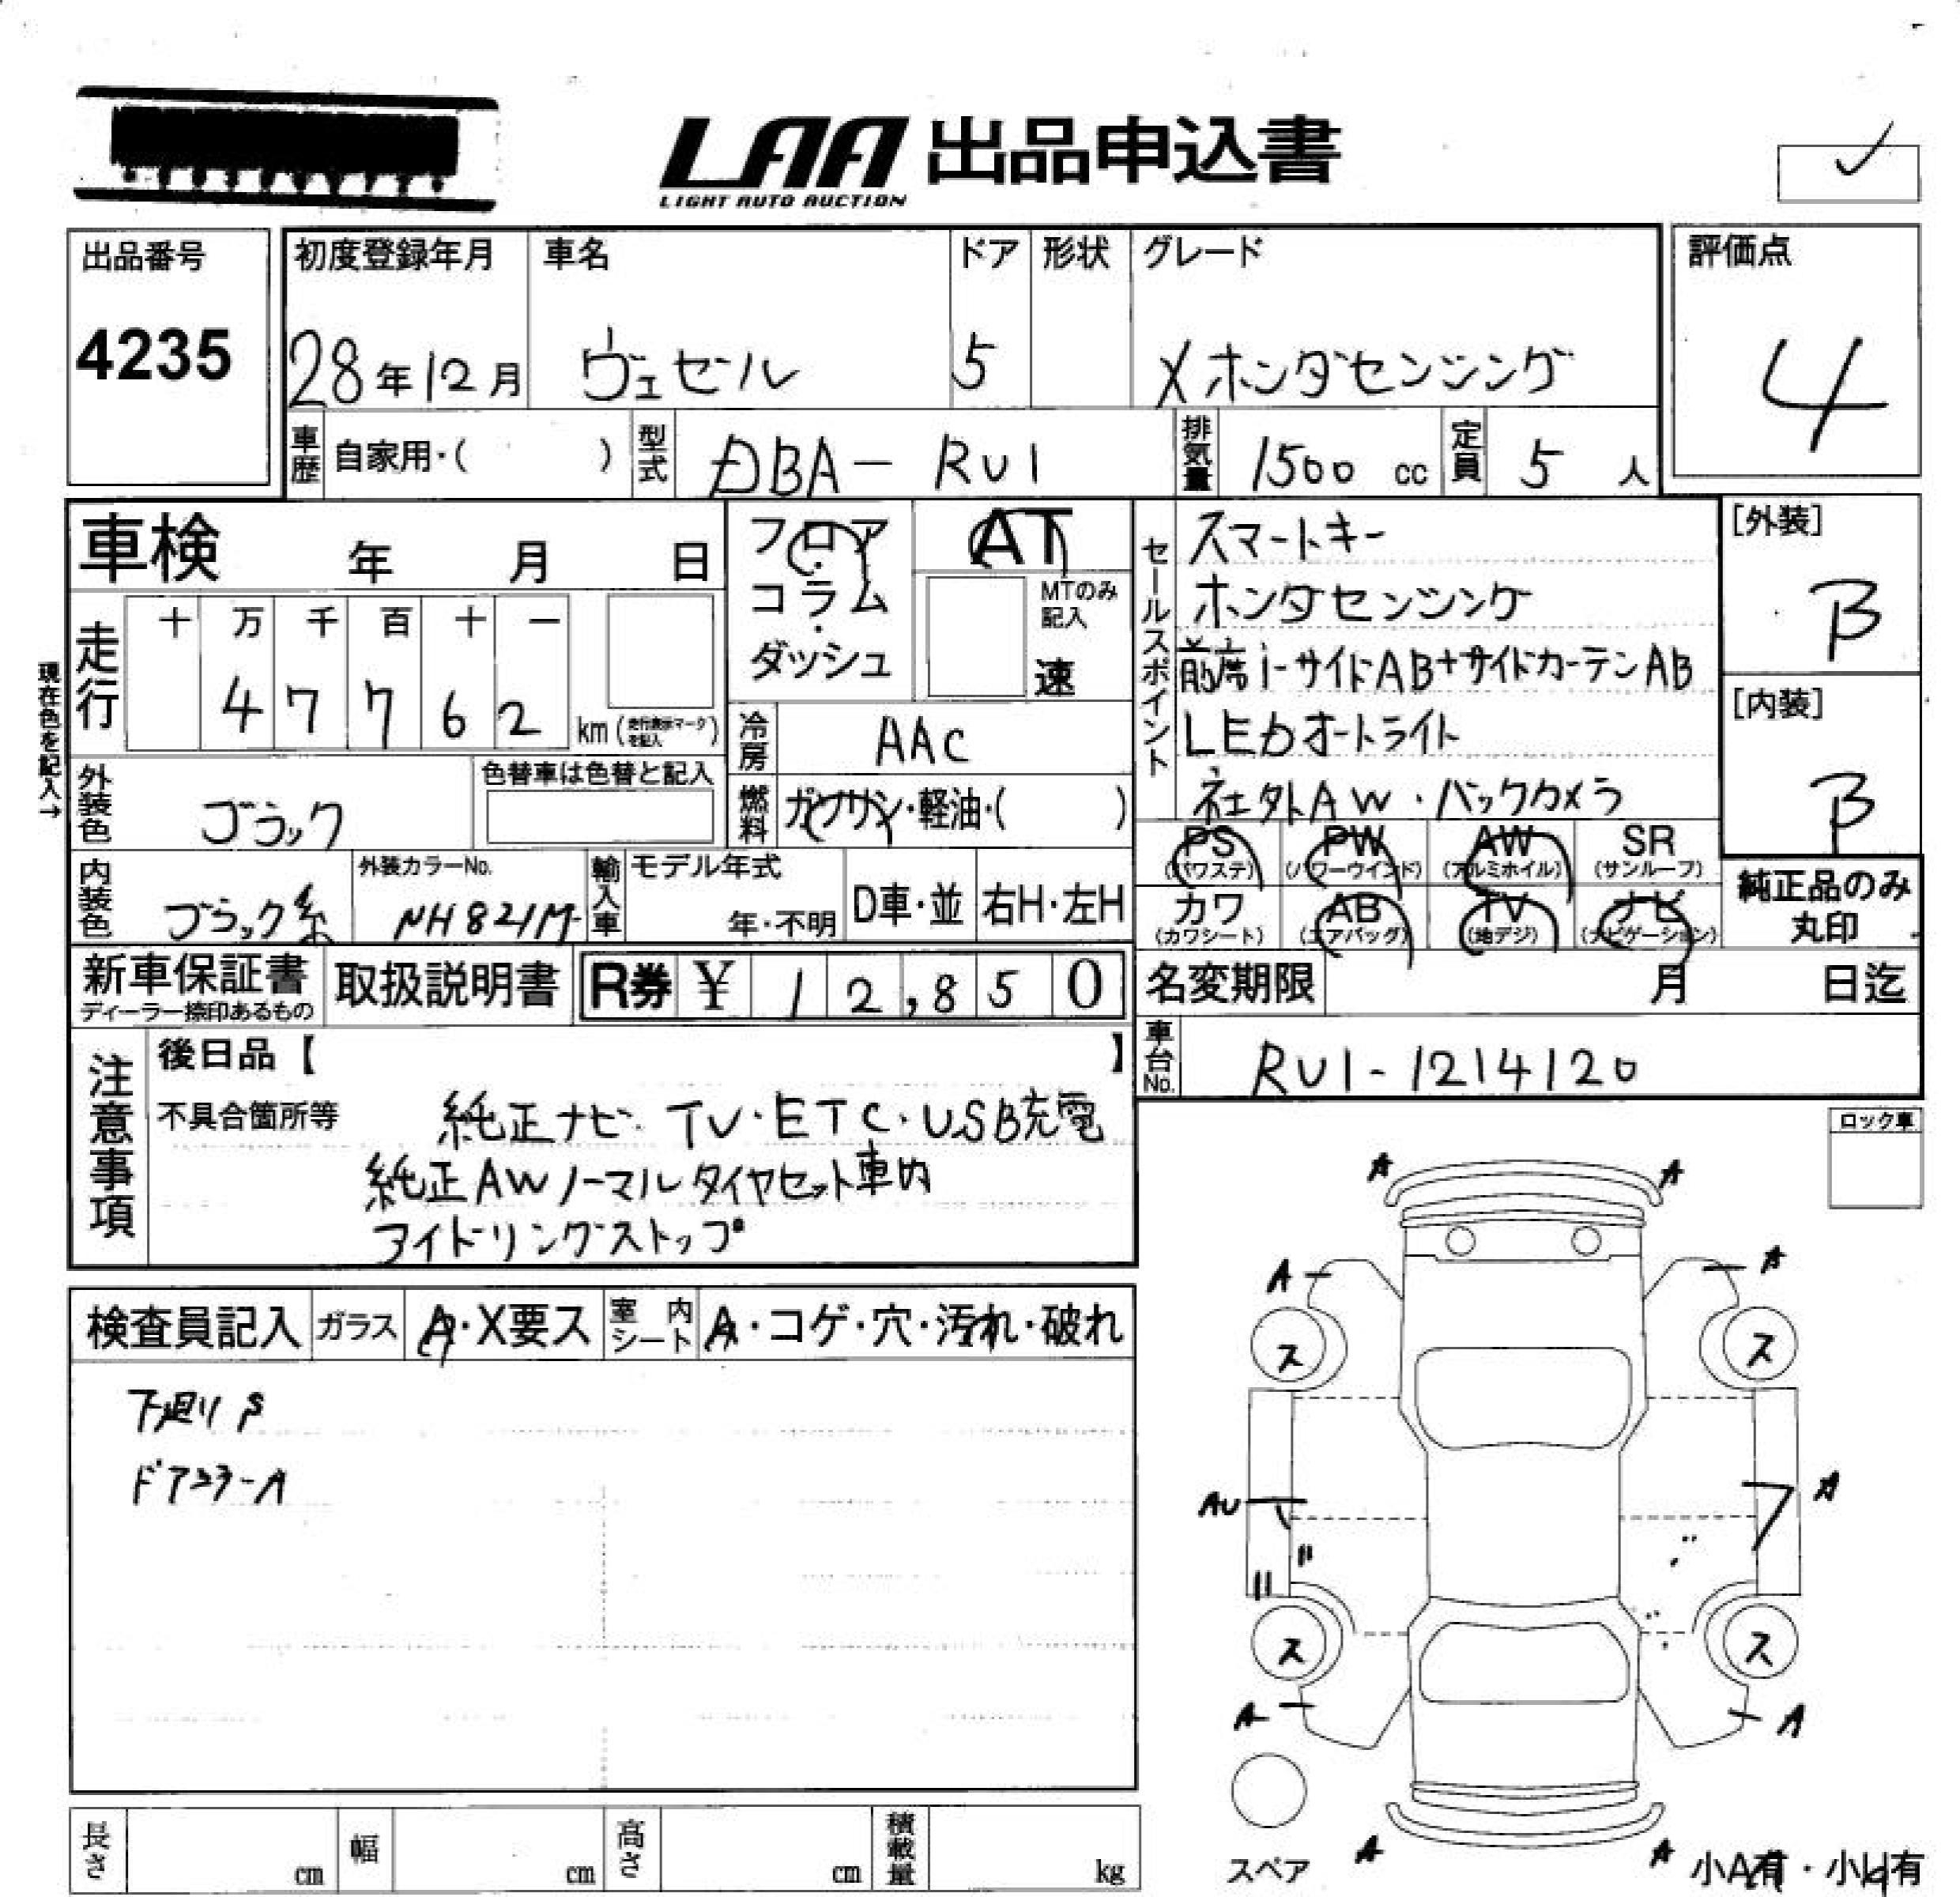 LAA 出品申込書
LIGHT AUTO AUCTION
出品番号
4235
初度登録年月 車名 ドア 形状 グレード
28年12月 ヴェゼル 5 Xホンダセンシング
評価点
4
車歴 自家用・( ) 型式 DBA-RU1 排気量 1500 cc 定員 5 人
車検 年 月 日
フロア・コラム・ダッシュ
AT
MTのみ記入
速
セールスポイント
スマートキー
ホンダセンシング
前席i-サイドAB+サイドカーテンAB
LEDオートライト
社外AW・バックカメラ
[外装]
B
[内装]
B
現在色を記入→
走行 十 万 千 百 十 一
4 7 7 6 2 km (走行表示マークを記入)
冷房 AAC
燃料 ガソリン・軽油・( )
外装色 ブラック
色替車は色替と記入
内装色 ブラック系
外装カラーNo.
NH821M
輸入車 モデル年式
年・不明
D車・並 右H・左H
PS (パワステ) PW (パワーウインド) AW (アルミホイル) SR (サンルーフ)
カワ (カワシート) AB (エアバッグ) TV (地デジ) ナビ (ナビゲーション)
純正品のみ丸印
新車保証書
ディーラー捺印あるもの
取扱説明書
R券 ¥ 12,850
名変期限 月 日迄
車台No. RU1-1214120
注意事項
後日品【 】
不具合箇所等 純正ナビ・TV・ETC・USB充電
純正AWノーマルタイヤセット車内
アイドリングストップ
ロック車
検査員記入 ガラス A・X要ス 室内シート A・コゲ・穴・汚れ・破れ
下廻りS
ドアミラーA
A A
A A
ス ス
AU A
〃 〃
ス ス
A A
スペア
A A
小A有・小U有
長さ cm 幅 cm 高さ cm 積載量 kg